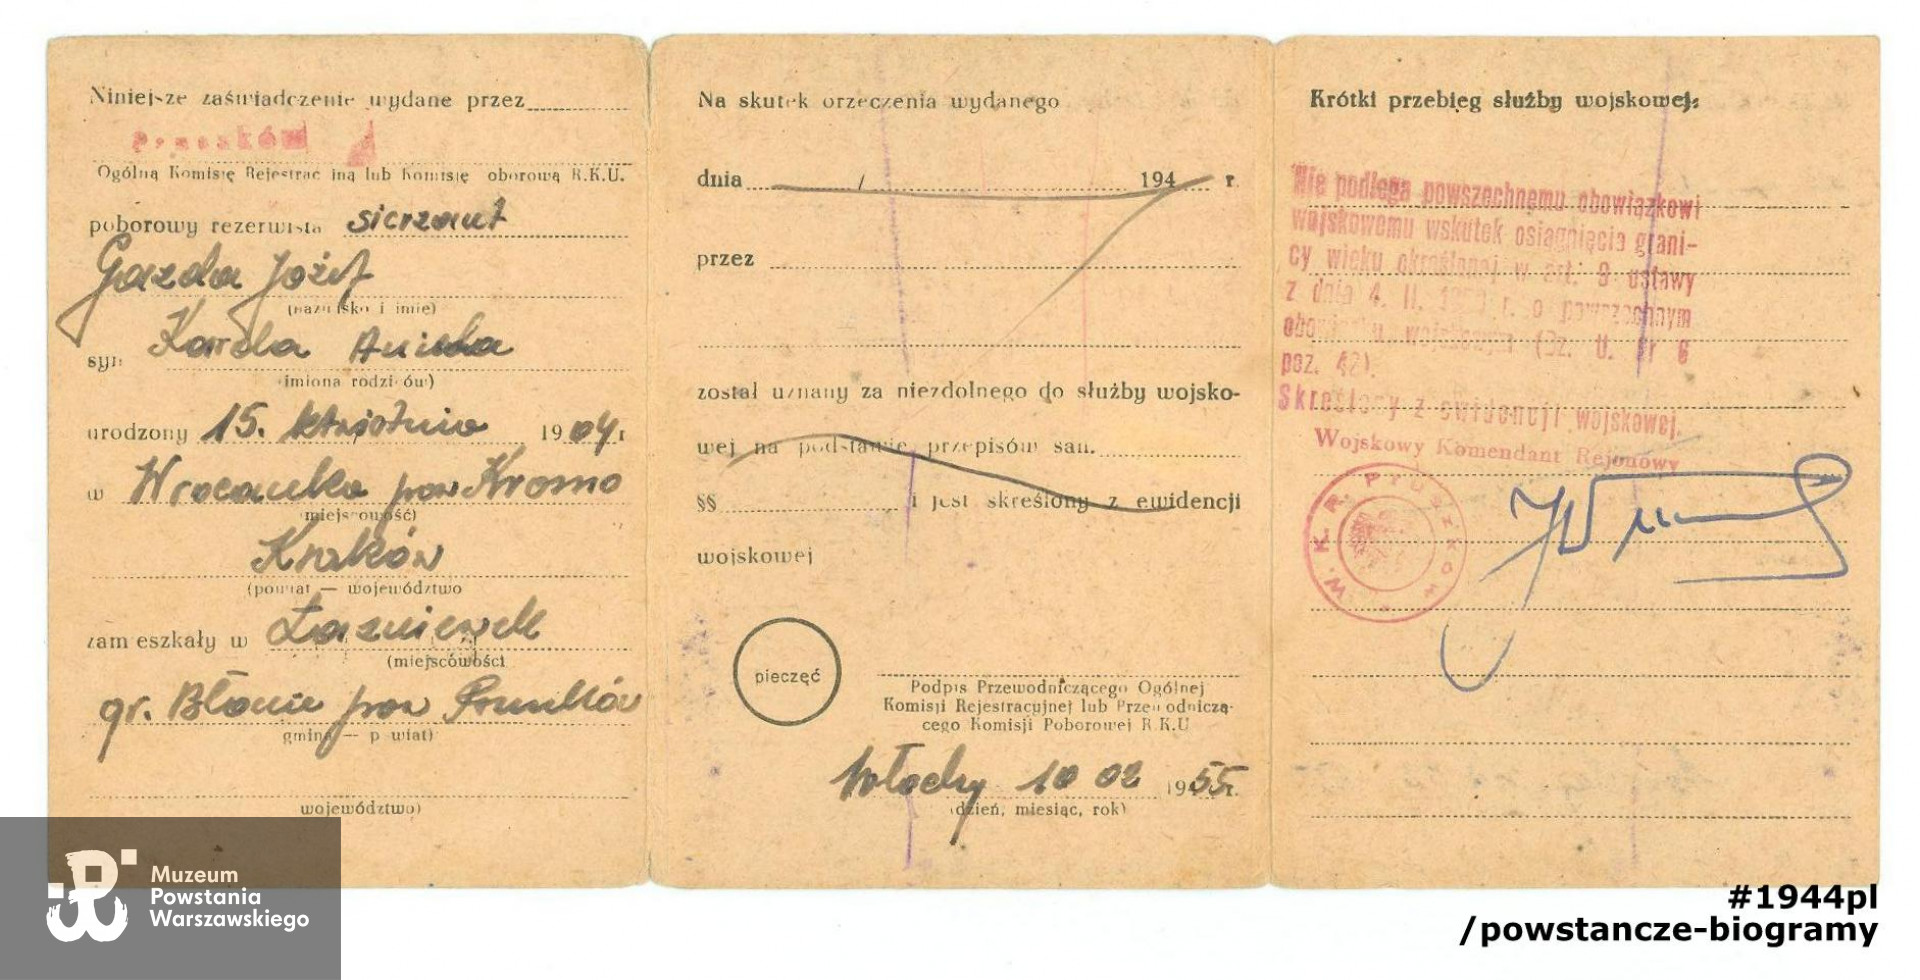 Niniejsze zaświadczenie wydane przez
Pruszków
Ogólną Komisję Rejestracyjną lub Komisję Poborową R.K.U.
poborowy rezerwista sierżant
Gazda Józef
(nazwisko i imię)
syn Karola Anieela
(imiona rodziców)
urodzony 15. kwietnia 1904 r
w Wrocanka pow Krosno
(miejscowość)
Kraków
(powiat — województwo
zamieszkały w Łaźniewek
(miejscowości
gr. Błonie pow Pruszków
gmina — powiat)
województwo)
Na skutek orzeczenia wydanego
dnia 194 r.
przez
został uznany za niezdolnego do służby wojsko-
wej na podstawie przepisów san.
§§ i jest skreślony z ewidencji
wojskowej
pieczęć
Podpis Przewodniczącego Ogólnej
Komisji Rejestracyjnej lub Przewodniczą-
cego Komisji Poborowej R.K.U
Włochy 10 02 1955 r.
(dzień, miesiąc, rok)
Krótki przebieg służby wojskowej:
Nie podlega powszechnemu obowiązkowi
wojskowemu wskutek osiągnięcia grani-
cy wieku określonej w art. 8 ustawy
z dnia 4. II. 1950 r. o powszechnym
obowiązku wojskowym (Dz. U. Nr 6
poz. 42).
Skreślony z ewidencji wojskowej.
Wojskowy Komendant Rejonowy
W.K.R. PRUSZKÓW
Muzeum
Powstania
Warszawskiego
#1944pl
/powstancze-biogramy